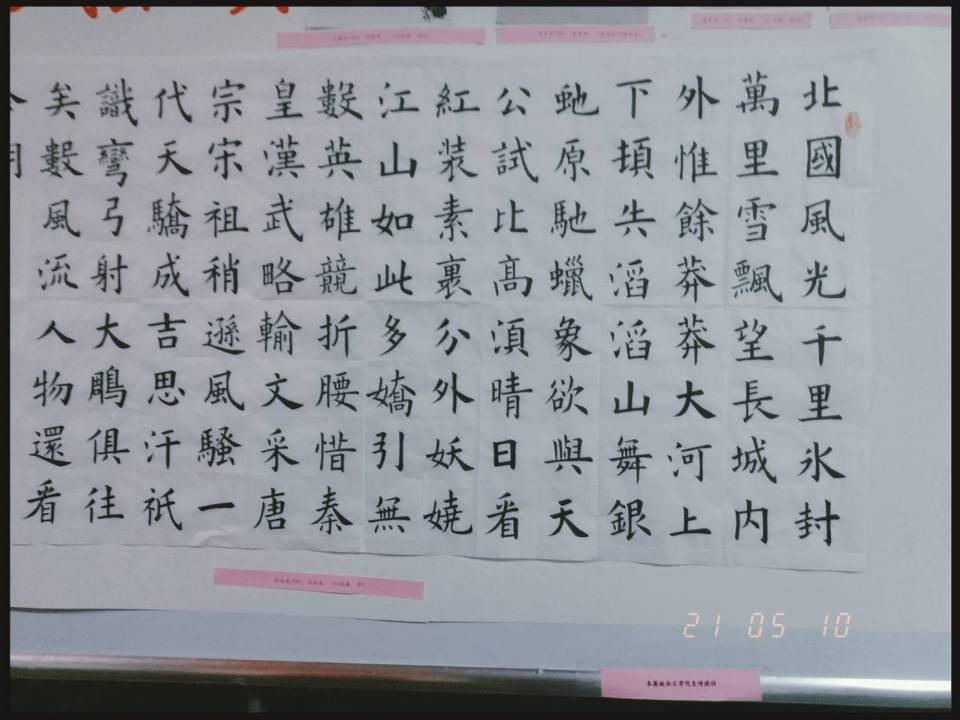 北國風光千里氷封
萬里雪飄望長城内
外惟餘莽莽大河上
下頓失滔滔山舞銀
虵原馳蠟象欲與天
公試比高須晴日看
紅装素裹分外妖嬈
江山如此多嬌引無
數英雄競折腰惜秦
皇漢武略輸文采唐
宗宋祖稍遜風騷一
代天驕成吉思汗祇
識彎弓射大鵰俱往
矣數風流人物還看
21 05 10